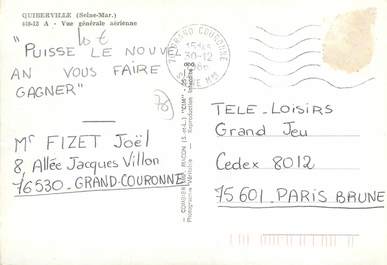 QUIBERVILLE (Seine-Mar.)
440-12 A - Vue générale aérienne
"PUISSE LE NOUVEL
AN VOUS FAIRE
GAGNER"
Mr FIZET Joël
8, Allée Jacques Villon
76530_GRAND-COURONNE
76 GRAND COURONNE
30-12
TELE-LOISIRS
Grand Jeu
Cedex 8012
75601_PARIS BRUNE